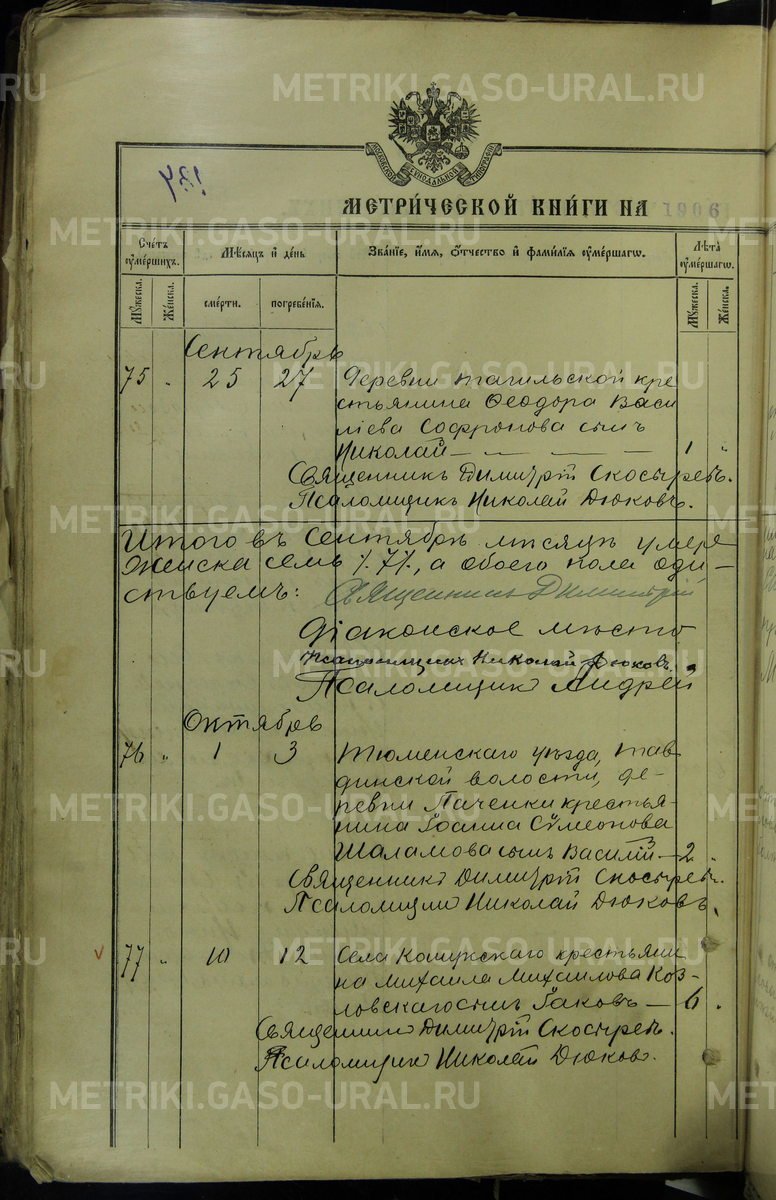 МОСКОВСКОЙ СѴНОДАЛЬНОЙ ТИПОГРАФІИ
184
МЕТРИ́ЧЕСКОЙ КНИ́ГИ НА 1906
Сче́тъ ᲂу҆ме́ршихъ.
Мѣ́сяцъ и҆ де́нь
Зва́нїе, и҆́мя, ѻ҆́тчество и҆ фами́лїя ᲂу҆ме́ршагѡ.
Лѣ́та ᲂу҆ме́ршагѡ.
Мꙋ́жеска.
Же́нска.
сме́рти.
погребе́нїѧ.
Мꙋ́жеска.
Же́нска.
Сентябрь
75 " 25 27 Деревни Тагильской кре
стьянина Ѳеодора Васи
ліева Софронова сынъ
Николай — — — — 1 "
Священникъ Димитрій Скосыревъ.
Псаломщикъ Николай Дюковъ.
Итого въ Сентябрѣ мѣсяцѣ умере
Женска семь /7/, а обоего пола оди—
ствуемъ: Священникъ Димитрій
Діаконское мѣсто
Псаломщикъ Николай Дюковъ.
Псаломщикъ Андрей
Октябрь
76 " 1 3 Тюменскаго уѣзда, Тав
динской волости, де-
ревни Паченки крестья-
нина Іоанна Сѵмеонова
Шаламова сынъ Василій — 2 "
Священникъ Димитрій Скосыревъ.
Псаломщикъ Николай Дюковъ.
77 " 10 12 Села крестьяни
на Михаила Михаилова Коз-
ловскаго сынъ Іаковъ — 6 "
Священникъ Димитрій Скосыревъ.
Псаломщикъ Николай Дюковъ.
METRIKI.GASO-URAL.RU